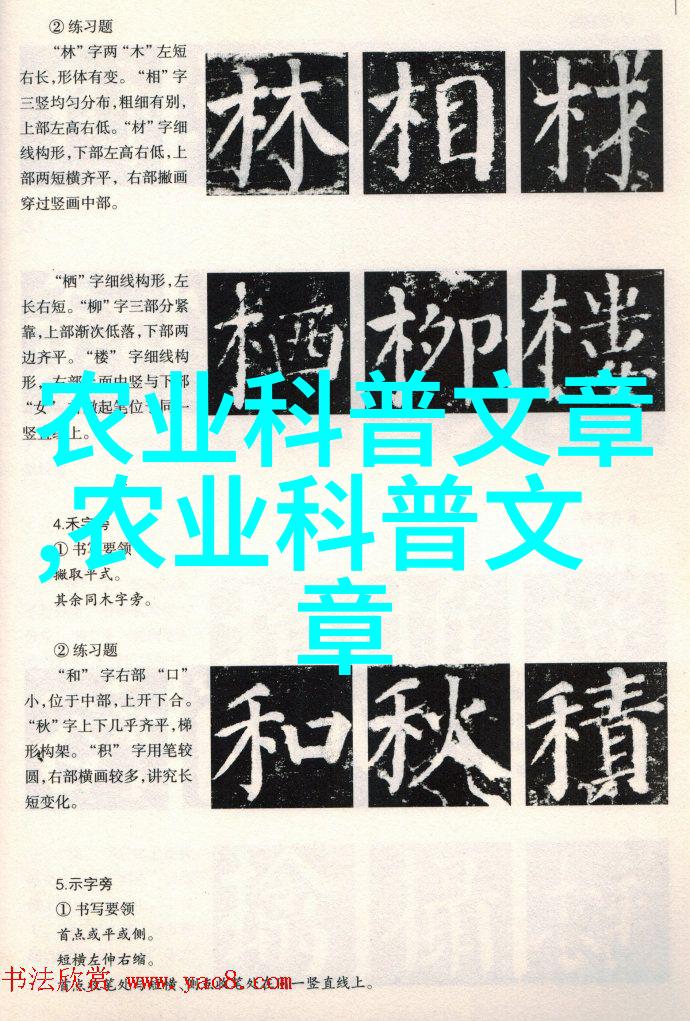 ② 练习题
“林”字两“木”左短
右长,形体有变。“相”字
三竖均匀分布,粗细有别,
上部左高右低。“材”字细
线构形,下部左高右低,上
部两短横齐平,右部撇画
穿过竖画中部。
林 相 材
“栖”字细线构形,左
长右短。“柳”字三部分紧
靠,上部渐次低落,下部两
边齐平。“楼”字细线构
形,右部上面中竖与下部
“女”起笔位于同一
竖直线上。
栖 柳 楼
农业科普文章
,农业科普文
章
4.禾字旁
① 书写要领
撇取平式。
其余同木字旁。
② 练习题
“和”字右部“口”
小,位于中部,上开下合。
“秋”字上下几乎齐平,梯
形构架。“积”字用笔较
圆,右部横画较多,讲究长
短变化。
和 秋 積
5.示字旁
① 书写要领
首点或平或侧。
短横左伸右缩。
首点收笔处与短横、
一竖直线上。
书法欣赏 www.yac8.com